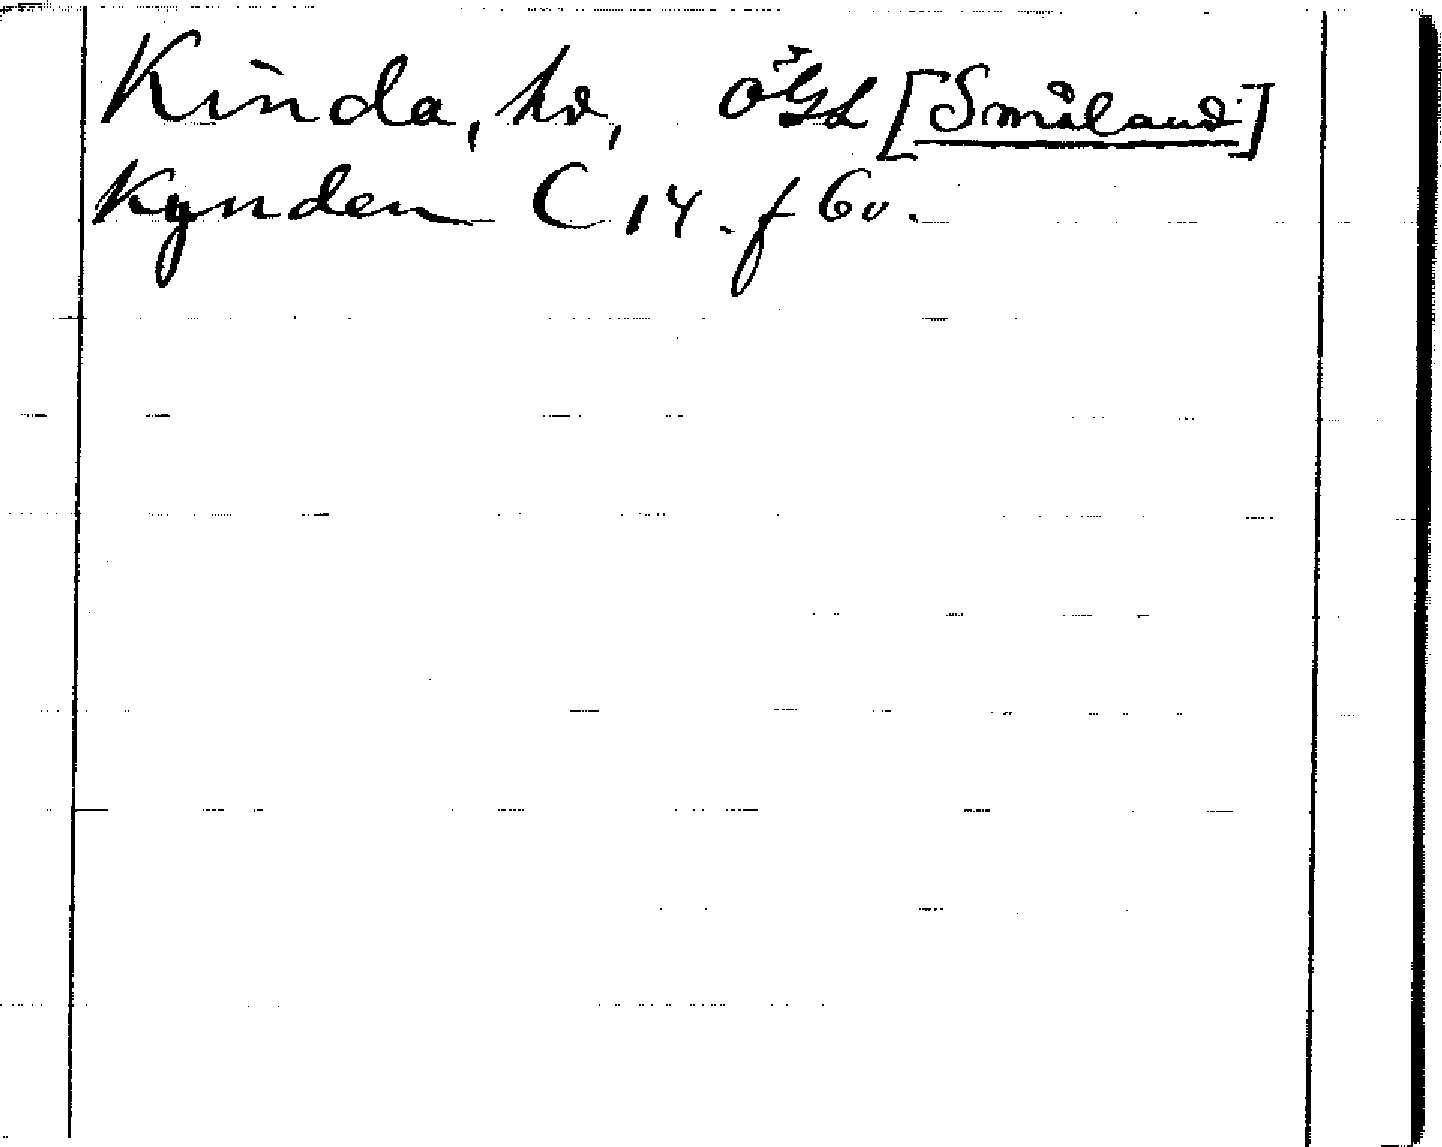 Kinda, hd, ÖGL [Småland]
Kynden C 14. f 6v.